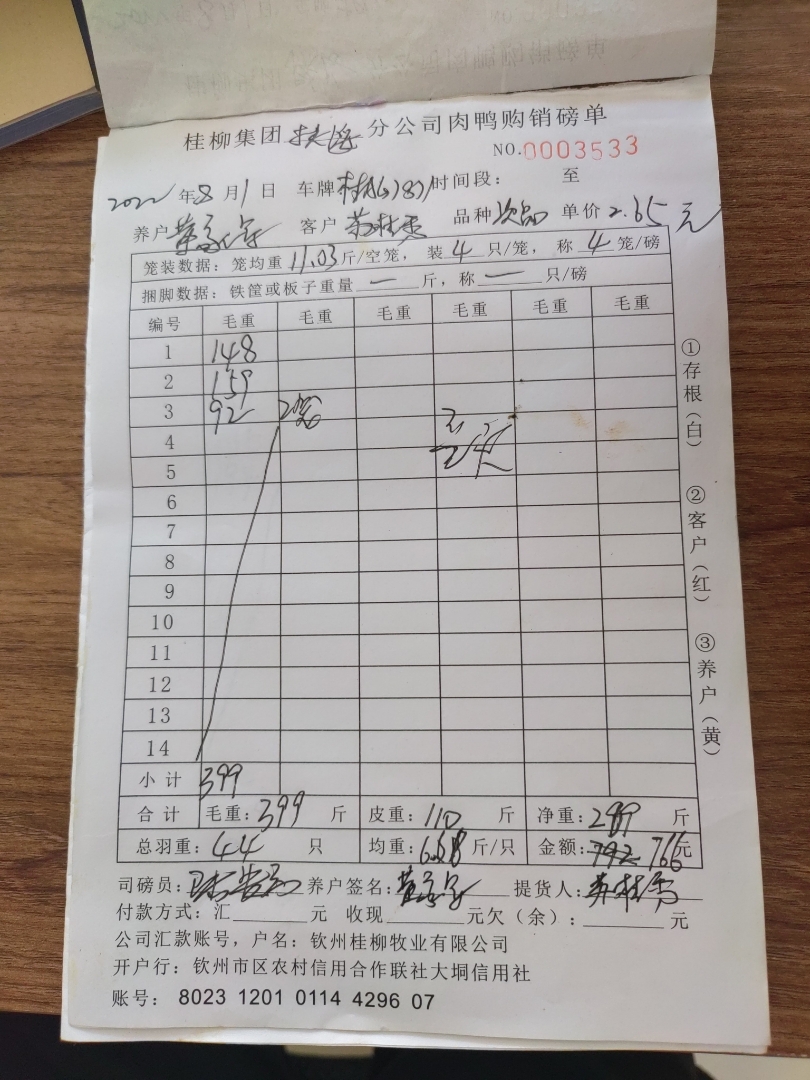 桂柳集团 分公司肉鸭购销磅单
NO.0003533
2022年8月1日 车牌 时间段： 至
养户 客户 苏桂秀 品种 次品 单价 2.65元
笼装数据：笼均重 11.03 斤/空笼，装 4 只/笼，称 4 笼/磅
捆脚数据：铁筐或板子重量 一 斤，称 一 只/磅
编号 毛重 毛重 毛重 毛重 毛重 毛重
1 148
2 159
3 92 2笼
4
5
6
7
8
9
10
11
12
13
14
小计 399
合计 毛重：399 斤 皮重：110 斤 净重：289 斤
总羽重：44 只 均重：6.568 斤/只 金额：792 766元
司磅员： 养户签名： 提货人：苏桂秀
付款方式：汇 元 收现 元欠（余）： 元
公司汇款账号，户名：钦州桂柳牧业有限公司
开户行：钦州市区农村信用合作联社大垌信用社
账号： 8023 1201 0114 4296 07
①存根（白）
②客户（红）
③养户（黄）